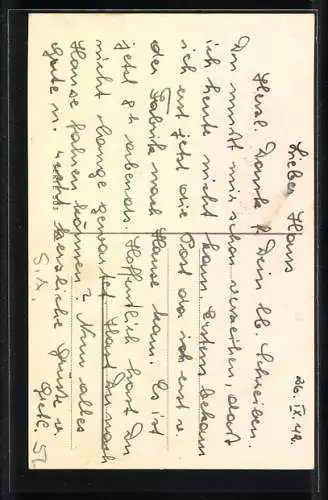 26. IX. 42.
Lieber Hans
Herzl. Dank f. Dein lb. Schreiben.
Du mußt mir schon verzeihen, daß
ich heute nicht kam. Erstens bekam
ich erst jetzt die Post da ich erst v.
der Fabrik nach Hause kam. Es ist
jetzt 8h abends. Hoffentlich hast Du
nicht lange gewartet. Hast Du nach
Hause fahren können? Nun alles
Gute u. herzliche Grüße u.